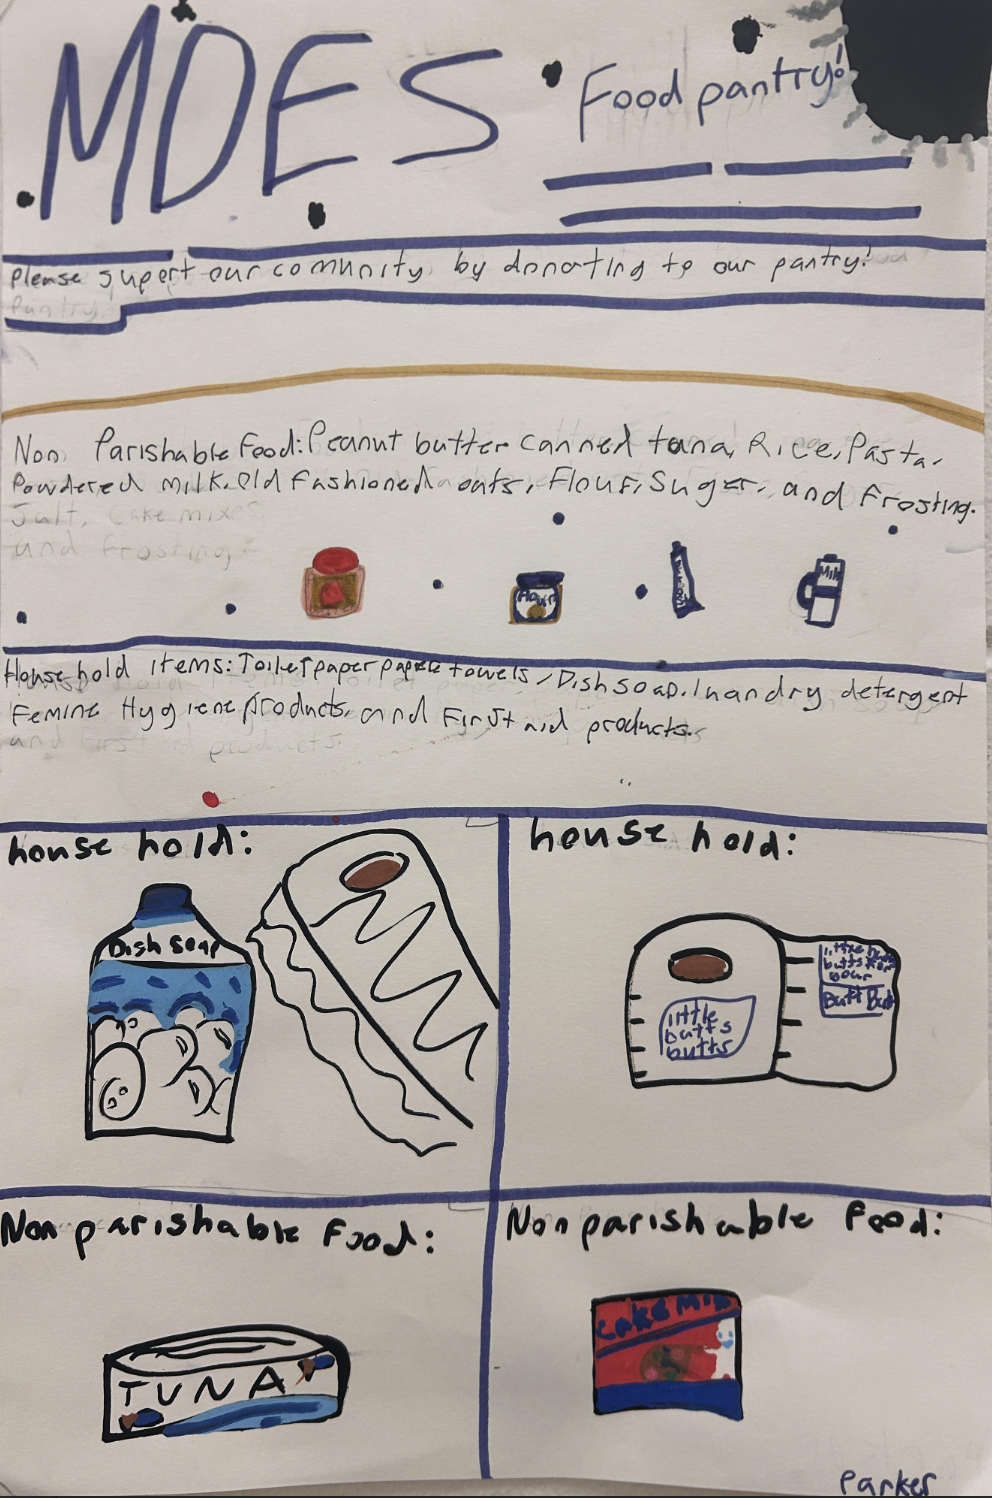 MDES Food pantry!
please supert our comunity by donating to our pantry!
pantry!
Non Parishable Food: Peanut butter canned tuna, Rice, Pasta,
Powdered milk, Old Fashioned oats, Flour, Suger, and frosting.
Salt, Cake mixes
and frosting
Flour
Milk
House hold items: Toilet paper paper towels, Dish soap, laundry detergent
Femine Hygiene products, and First aid products.
and First aid products.
house hold:
house hold:
Dish soap
little
butts
butts
little
butts for
your
Butt Butt
Non parishable Food:
Non parishable Food:
Cake Mix
TUNA
Parker